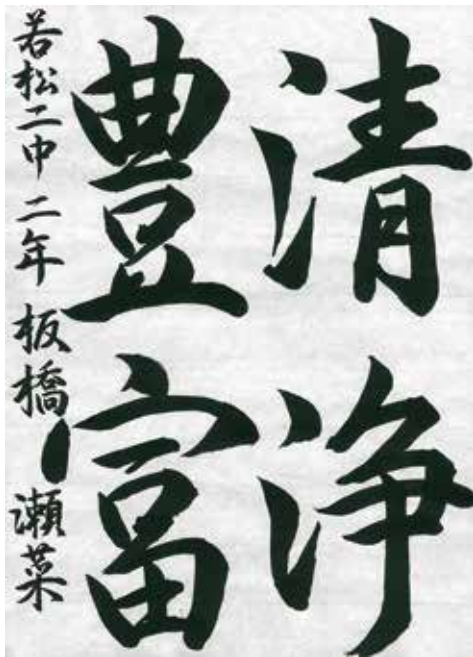 清浄
豊富
若松二中 二年 板橋 瀬菜